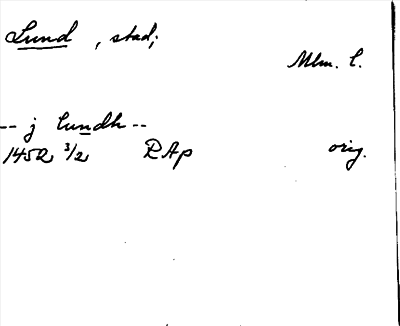 Lund, stad;
Mlm. l.
-- j lundh --
1452 3/2 RAp orig.